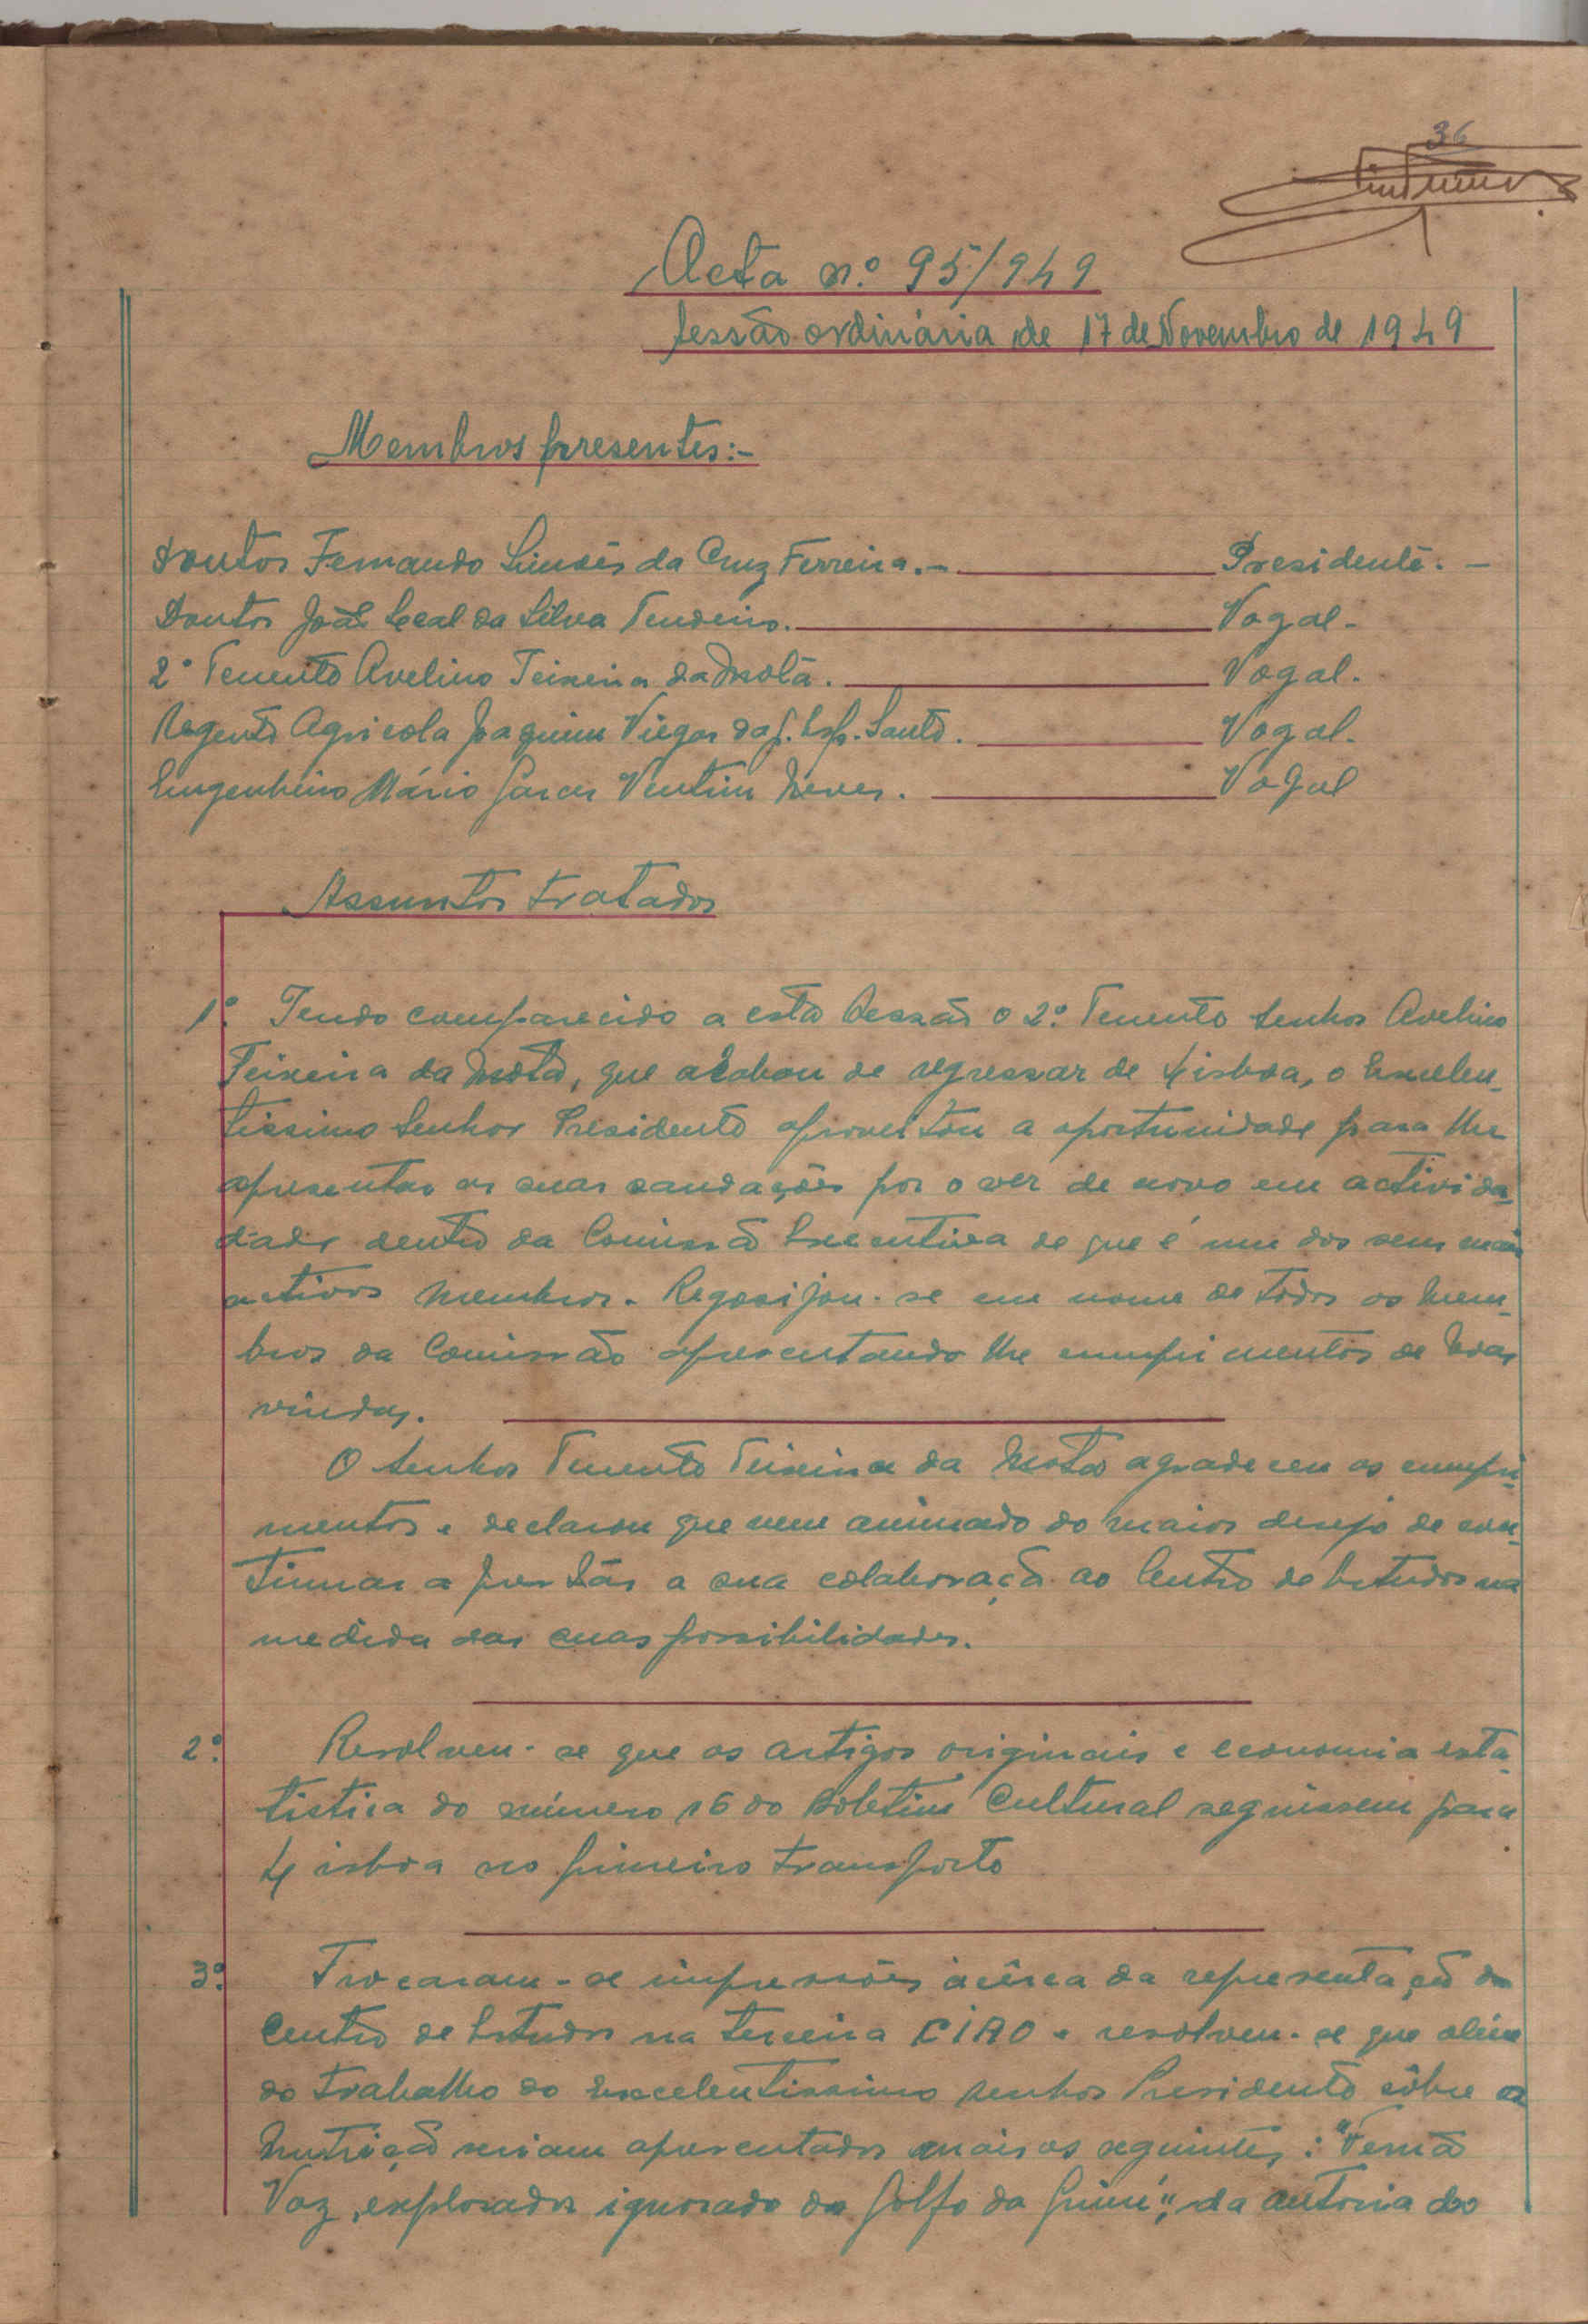 36
Acta n.º 95/949
Sessão ordinária de 17 de Novembro de 1949
Membros presentes:-
Doutor Fernando Simões da Cruz Ferreira.- Presidente. -
Doutor João Leal da Silva Tendeiro. Vogal.
2º Tenente Avelino Teixeira da Mota. Vogal.
Regente Agricola Joaquim Viegas da G. Esp. Santo. Vogal.
Engenheiro Mário Garces Ventim Neves. Vogal
Assuntos tratados
1º. Tendo comparecido a esta Sessão o 2º. Tenente Senhor Avelino
Teixeira da Mota, que acabou de regressar de Lisboa, o Excelen_
tissimo Senhor Presidente aproveitou a oportunidade para lhe
apresentar as suas saudações por o ver de novo em activida_
dade dentro da Comissão Executiva de que é um dos seus mais
activos membros. Regosijou-se em nome de todos os mem_
bros da Comissão apresentando lhe cumprimentos de boas
vindas.
O Senhor Tenente Teixeira da Mota agradeceu os cumpri_
mentos e declarou que vem animado do maior desejo de con_
tinuar a prestar a sua colaboração ao Centro de Estudos na
medida das suas possibilidades.
2º. Resolveu-se que os artigos originais e economia esta_
tistica do número 16 do Boletim Cultural seguissem para
Lisboa no primeiro transporte
3º. Trocaram-se impressões àcêrca da representação do
Centro de Estudos na terceira CIAO e resolveu-se que além
do trabalho do Excelentissimo Senhor Presidente sôbre a
Nutrição seriam apresentados mais os seguintes: "Fernão
Vaz, explorador ignorado do Golfo da Guiné", da autoria do